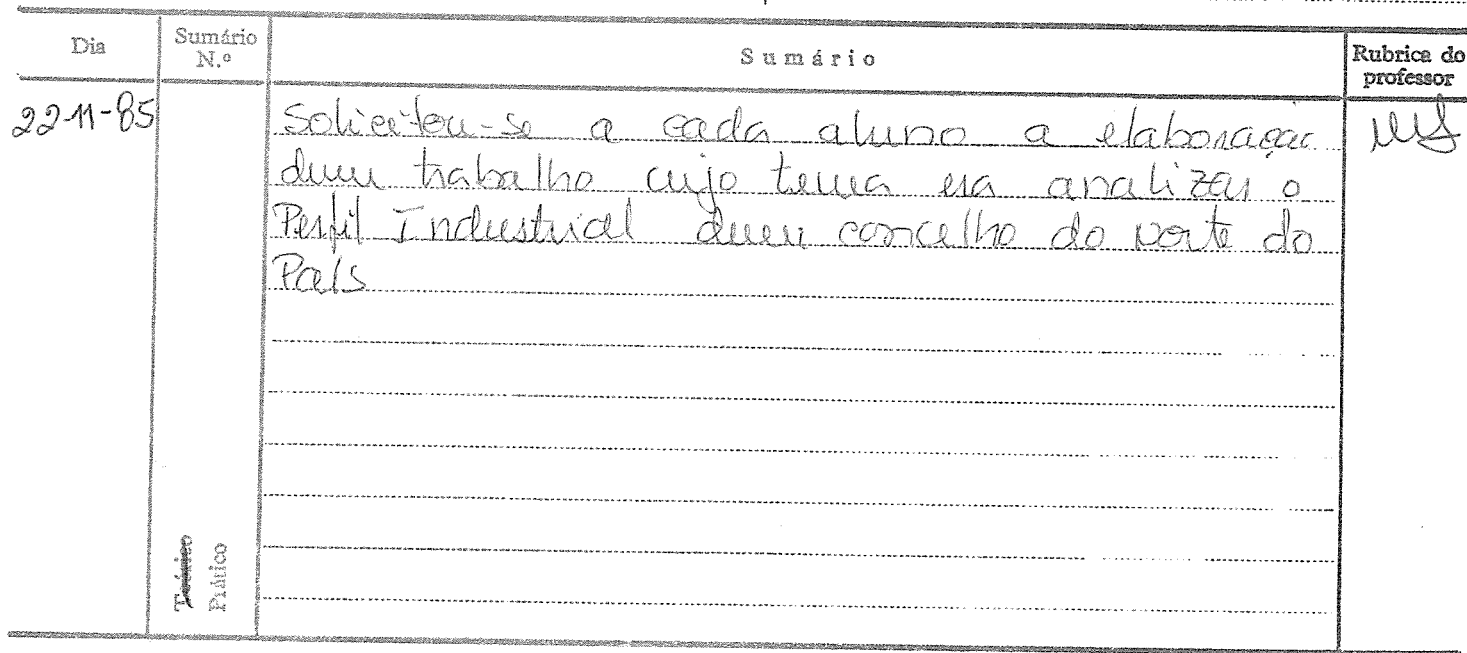 Dia
Sumário N.º
Sumário
Rubrica do professor
22-11-85
Solicitou-se a cada aluno a elaboração
dum trabalho cujo tema era analizar o
Perfil Industrial dum concelho do norte do
País
Teórico
Prático